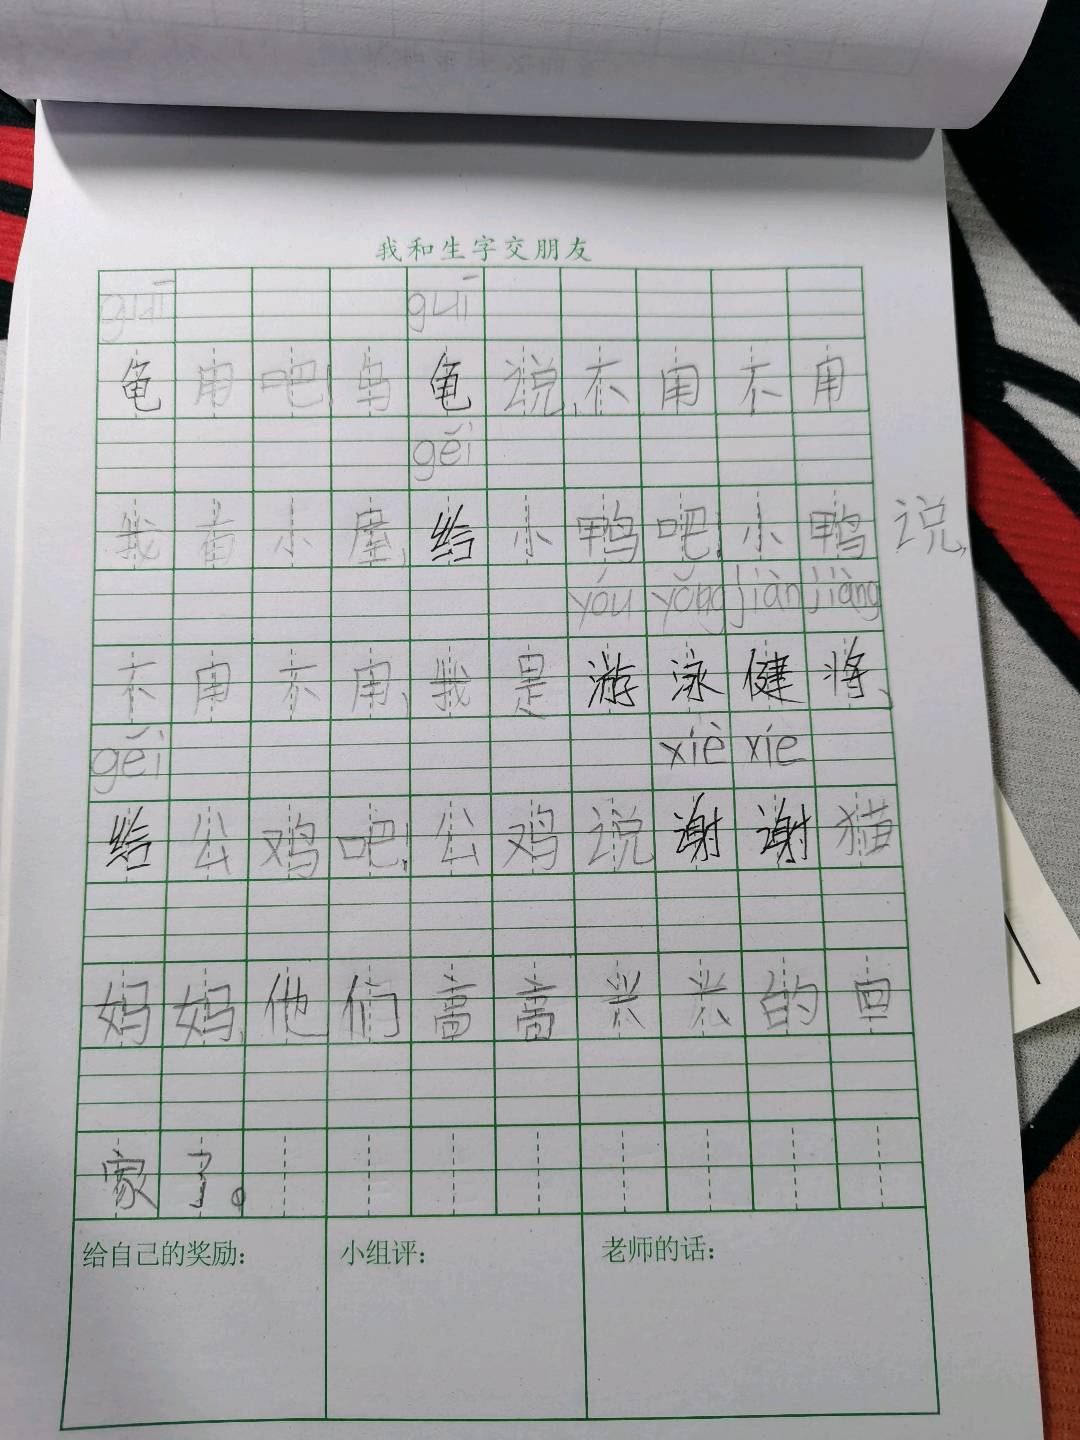 我和生字交朋友
guī guī
龟用吧！乌龟说，不用不用
gěi
我有小屋，给小鸭吧！小鸭说，
yóu yǒng jiàn jiàng
不用不用、我是游泳健将、
gěi xiè xie
给公鸡吧！公鸡说谢谢猫
妈妈，他们高高兴兴的回
家了。
给自己的奖励： 小组评： 老师的话：